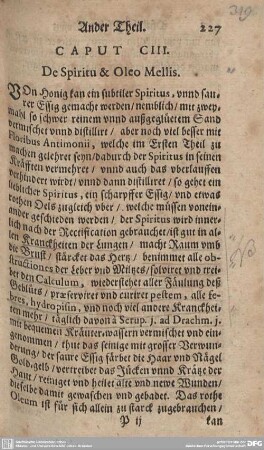 Ander Theil. 227
CAPUT CIII.
De Spiritu & Oleo Mellis.
VOn Honig kan ein subtiler Spiritus, vnnd sau-
rer Essig gemacht werden/ nemblich/ mit zwey-
mahl so schwer reinem vnnd außgeglüetem Sand
vermischet vnnd distillirt/ aber noch viel besser mit
Floribus Antimonii, welche im Ersten Theil zu
machen gelehret seyn/ dadurch der Spiritus in seinen
Kräfften vermehret/ vnnd auch das vberlauffen
verhindert würdt/ vnnd dann distilliret/ so gehet ein
lieblicher Spiritus, ein scharpffer Essig/ vnd etwas
rothen Oels zugleich vber/ welche müssen vonein-
ander geschieden werden/ der Spiritus wird inner-
lich nach der Rectification gebrauchet/ ist gut in al-
len Kranckheiten der Lungen/ macht Raum vmb
die Brust/ stärcket das Hertz/ benimmet alle ob-
structiones der Leber vnd Miltzes/ solviret vnd trei-
bet den Calculum, wiederstehet aller Fäulung deß
Geblüts/ præserviret vnd curiret pestem, alle fe-
bres, hydropisin, vnd noch viel andere Kranckhei-
ten mehr/ täglich davon à Scrup. j. ad Drachm. j.
mit bequemen Kräuterwassern vermischet vnd ein-
genommen/ thut die seinige mit grosser Verwun-
derung/ der saure Essig färbet die Haar vnd Nägel
Gold-gelb/ vertreibet das Jücken vnnd Krätze der
Haut/ reiniget vnd heilet alte vnd newe Wunden/
dieselbe damit gewaschen vnd gebadet. Das rothe
Oleum ist für sich allein zu starck zugebrauchen/
P ij kan